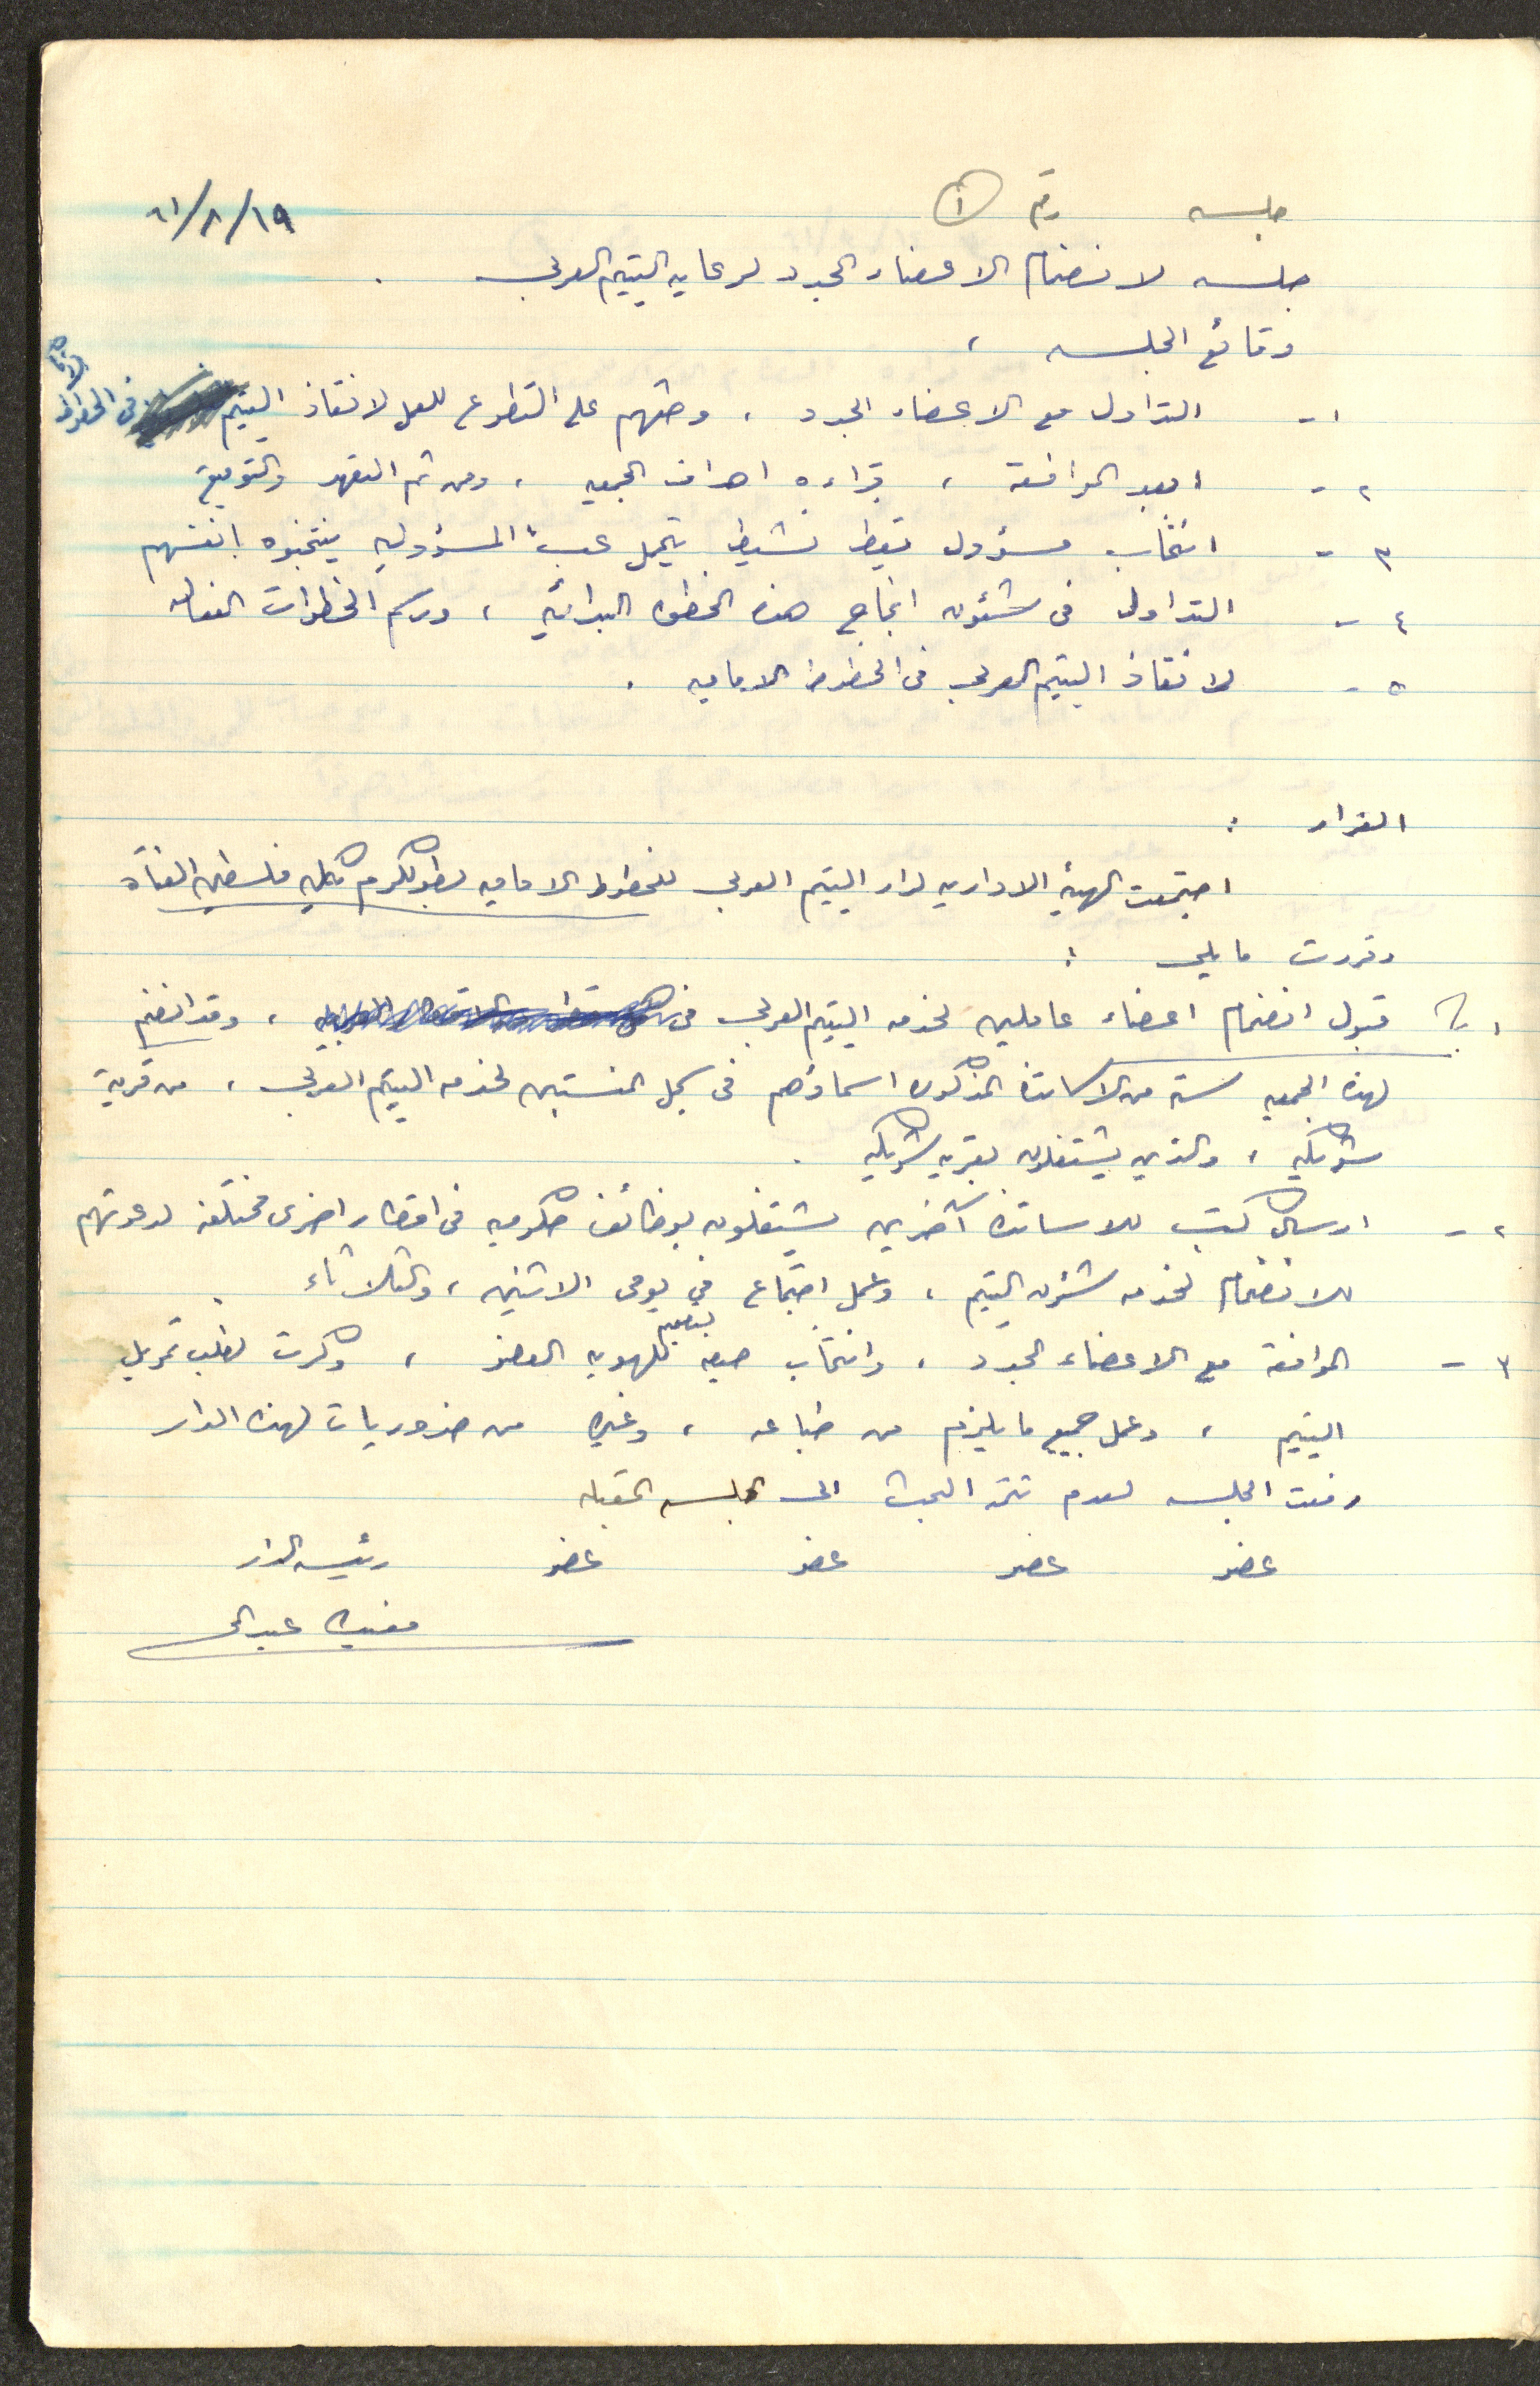 جلسه رقم ١ ١٩/٨/٦١
جلسه لانضمام الاعضاء الجدد لرعايه اليتيم العربي .
وقائع الجلسه ،
١ - التداول مع الاعضاء الجدد ، وحثهم على التطوع للعمل لانقاذ اليتيم في الخطوط الاماميه
٢ - ابعد الموافقة ، قراءه اهداف الجمعيه ، ومن ثم التعهد والتوقيع
٣ - انتخاب مسؤول يقظ نشيط يتحمل عبء المسؤوليه ينتخبوه انفسهم
٤ - التداول في شئون انجاح هذه الخطوه البدائيه ، ورسم الخطوات الفعاله
٥ - لانقاذ اليتيم العربي في الخطوط الاماميه .
القرار :
اجتمعت الهيئه الاداريه لدار اليتيم العربي للخطوط الاماميه بطولكرم كليه فلسطين الفتاه
وقررت مايلي :
١ - قبول انضمام اعضاء عاملين لخدمه اليتيم العربي في ، وقد انضم
لهذه الجمعيه سته من الاساتذه المذكوره اسماؤهم في سجل المنتسبين لخدمه اليتيم العربي ، من قرية
شويكه ، والذين يشتغلون بقريه شويكه .
٢ - ارسال كتب للاساتذه آخرين يشتغلون بوظائف حكوميه في اقطار اخرى مختلفه لدعوتهم
للانضمام لخدمه شئون اليتيم ، وعمل اجتماع في يومي الاثنين ، والثلاثاء .
٣ - الموافقة مع الاعضاء الجدد ، وانتخاب صيغه لهويه العضو ، وكرت لطلب تمويل
اليتيم ، وعمل جميع مايلزم من طباعه ، وغيره من ضروريات لهذه الدار
رفعت الجلسه لعدم تتمة البحث الى الجلسه المقبله
عضو عضو عضو عضو رئيسه الدار
مفيده عبد